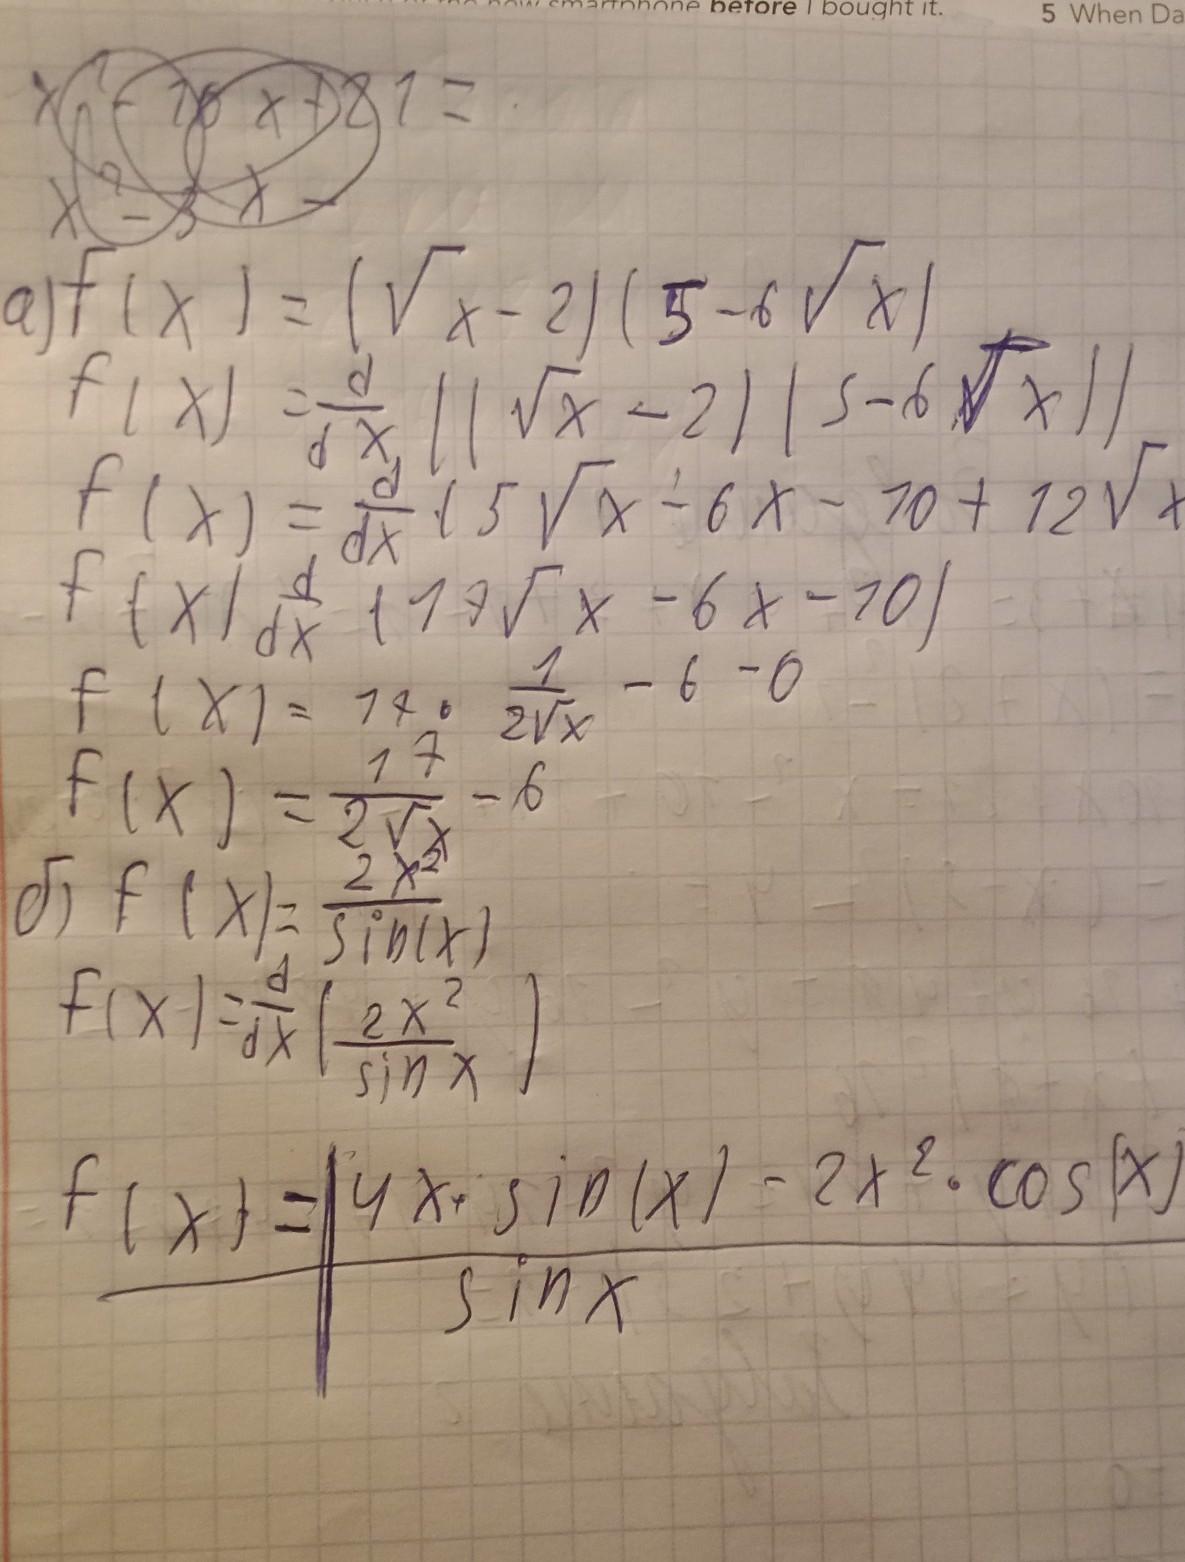 smartphone before I bought it. 5 When Da
x² - 10x + 21 =
x² - 3 x -
а) f(x) = (√x - 2)(5 - 6√x)
f(x) = d/dx ((√x - 2)(5 - 6√x))
f(x) = d/dx (5√x - 6x - 10 + 12√x
f(x) d/dx (17√x - 6x - 10)
f(x) = 17 · 1/2√x - 6 - 0
f(x) = 17/2√x - 6
б) f(x) = 2x²/sin(x)
f(x) = d/dx (2x²/sin x)
f(x) = 4x · sin(x) - 2x² · cos(x)
sin x